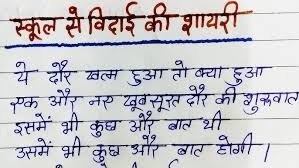 स्कूल से विदाई की शायरी
ये दौर खत्म हुआ तो क्या हुआ
एक और नए खूबसूरत दौर की शुरुवात
इसमें भी कुछ और बात थी
उसमें भी कुछ और बात होगी ।